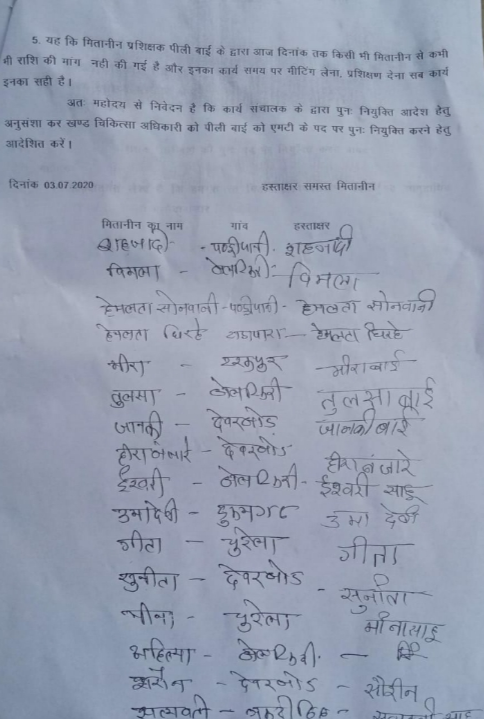 5. यह कि मितानीन प्रशिक्षक पीली बाई के द्वारा आज दिनांक तक किसी भी मितानीन से कभी
भी राशि की मांग नही की गई है और इनका कार्य समय पर मीटिंग लेना, प्रशिक्षण देना सब कार्य
इनका सही है।
अतः महोदय से निवेदन है कि कार्य संचालक के द्वारा पुनः नियुक्ति आदेश हेतु
अनुसंशा कर खण्ड चिकित्सा अधिकारी को पीली बाई को एमटी के पद पर पुनः नियुक्ति करने हेतु
आदेशित करें।
दिनांक 03.07.2020 हस्ताक्षर समस्त मितानीन
मितानीन का नाम गांव हस्ताक्षर
शहजादी - पण्डीपानी - शहजादी
विमला - विमला
हेमलता सोनवानी - पण्डीपानी - हेमलता सोनवानी
हेमलता घिरहे - हेमलता घिरहे
मीरा - मीराबाई
तुलसा - तुलसा बाई
जानकी - देवरबोड जानकी बाई
हीरा बंजारे - देवरबोड हीरा बंजारे
ईश्वरी - ईश्वरी साहू
उमादेवी - उमा देवी
गीता - चुरेला गीता
सुनीता - देवरबोड - सुनीता
मीना - चुरेला मीना साहू
अहिल्या -
सरोन - देवरबोड - सौरीन
सत्यवती -